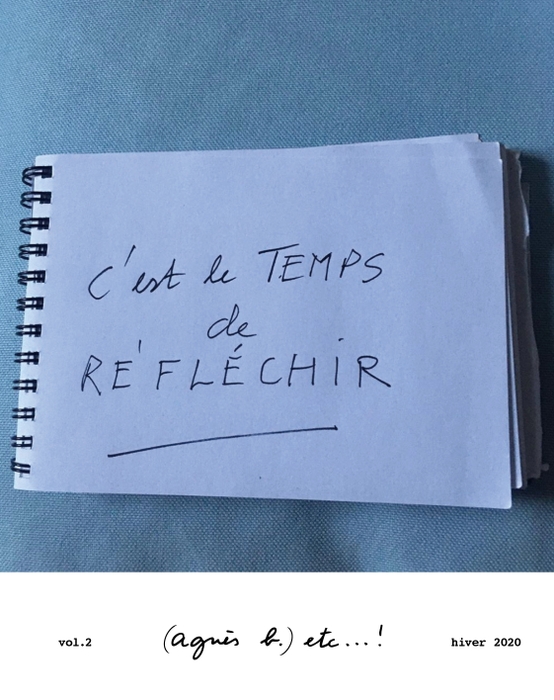 c'est le TEMPS
de
RÉFLÉCHIR
vol.2
(agnès b.) etc...!
hiver 2020